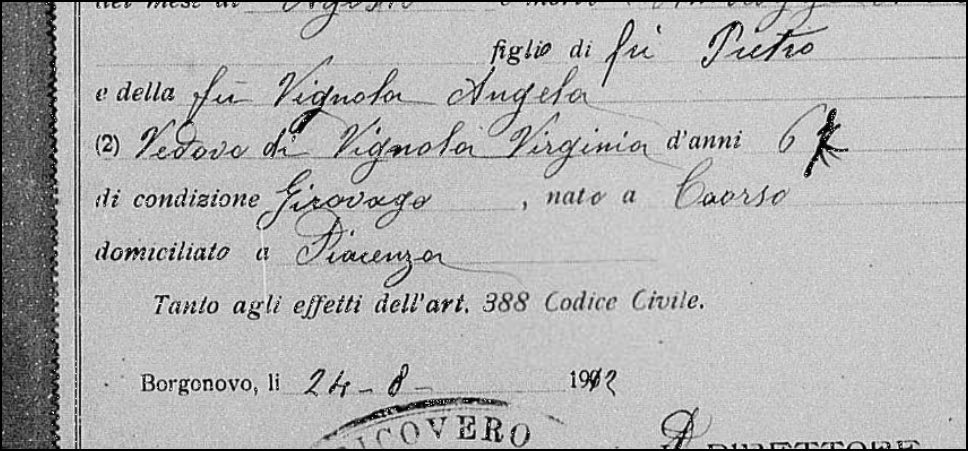 dei mesi di Agosto è morto
figlio di fù Pietro
e della fù Vignola Angela
(2) Vedovo di Vignola Virginia d'anni
di condizione Girovago, nato a Caorso
domiciliato a Piacenza
Tanto agli effetti dell'art. 388 Codice Civile.
Borgonovo, li 24-8- 1912
RICOVERO
DIRETTORE